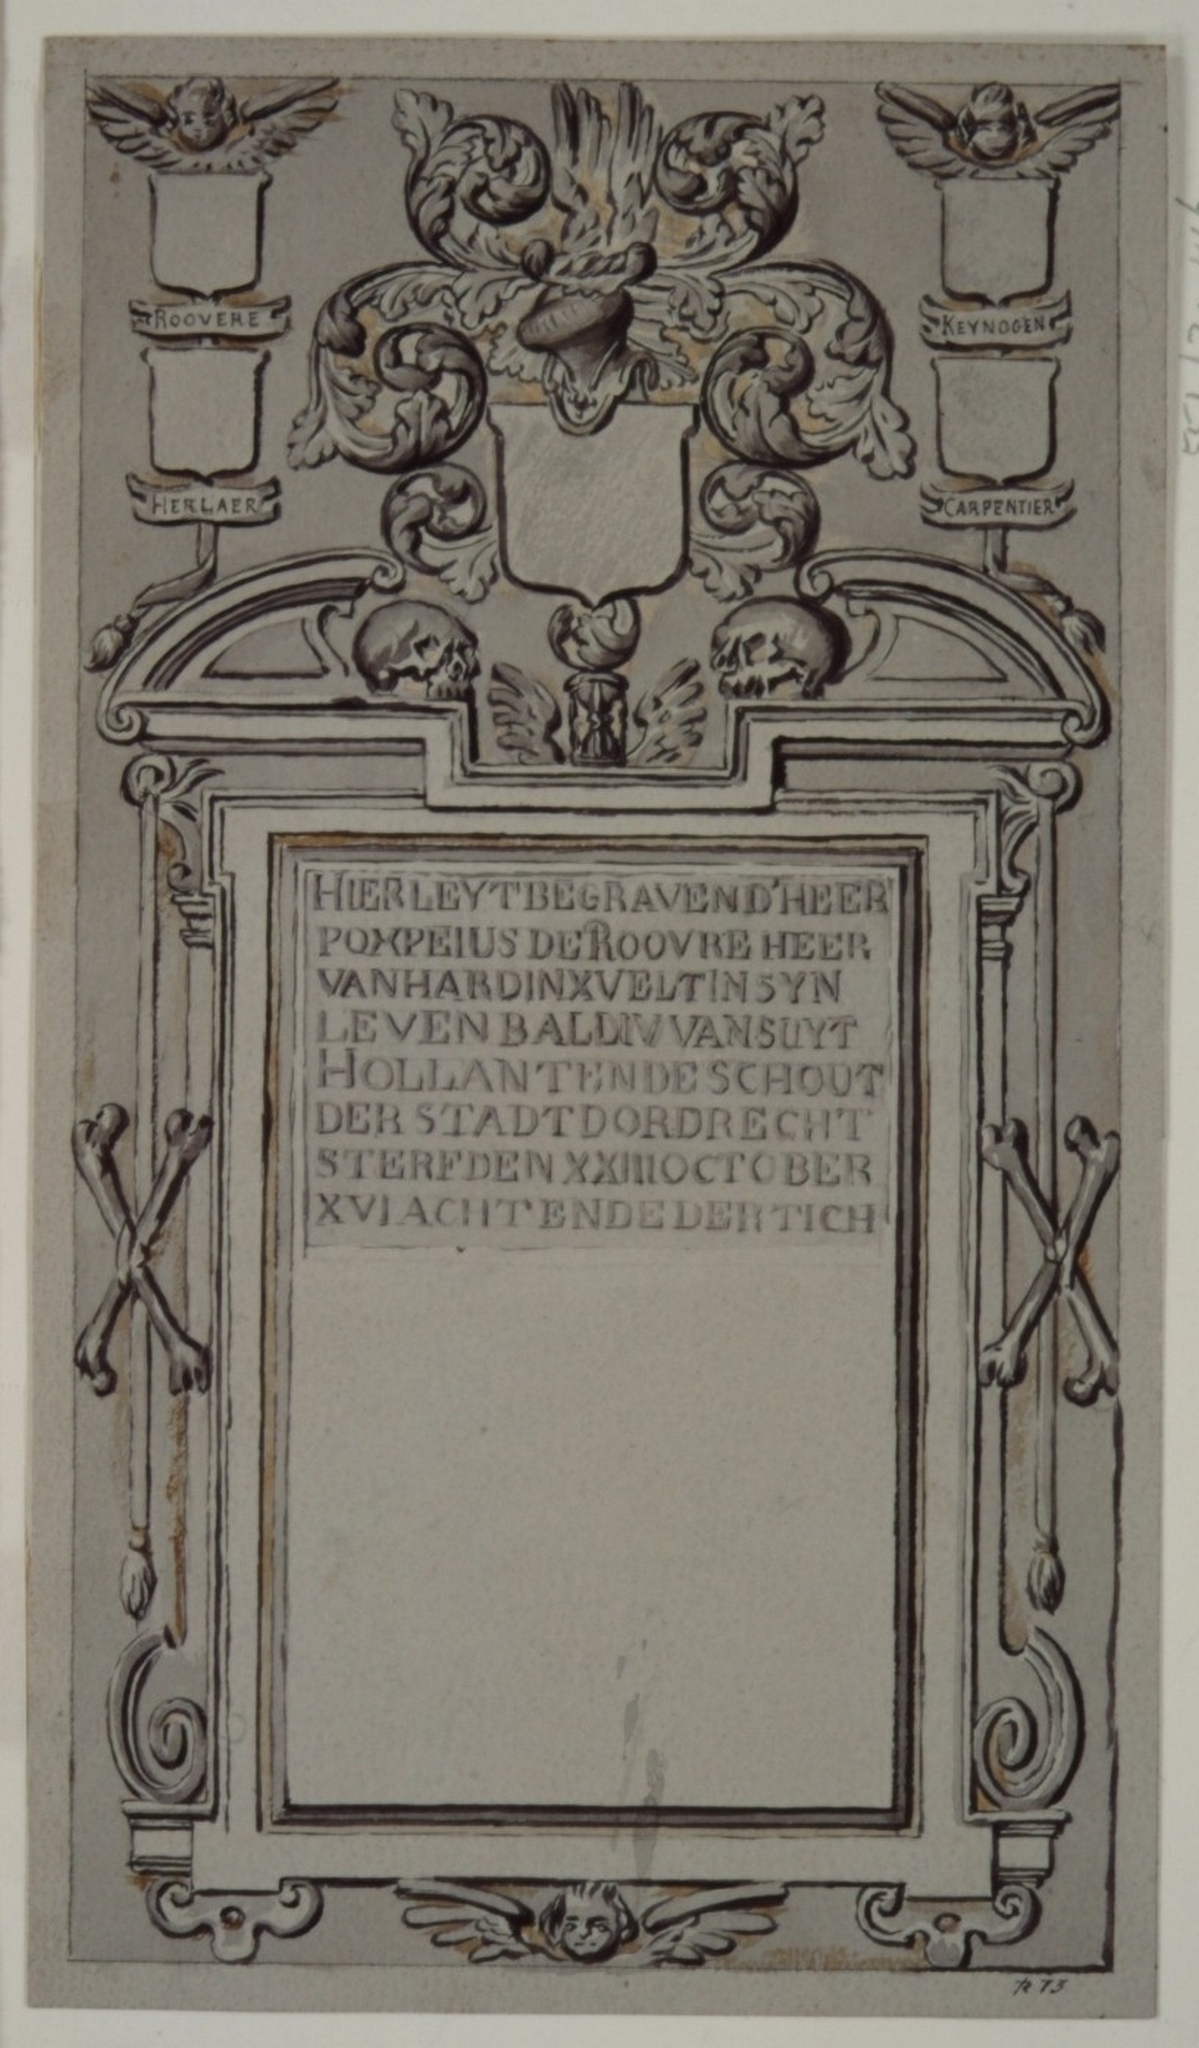 ROOVERE
KEYNOGEN
HERLAER
CARPENTIER
HIER LEYT BEGRAVEN D'HEER
POMPEIUS DE ROOVRE HEER
VAN HARDINXVELT IN SYN
LEVEN BALDIV VAN SUYT
HOLLANT ENDE SCHOUT
DER STADT DORDRECHT
STERF DEN XXIII OCTOBER
XVI ACHT ENDE DERTICH